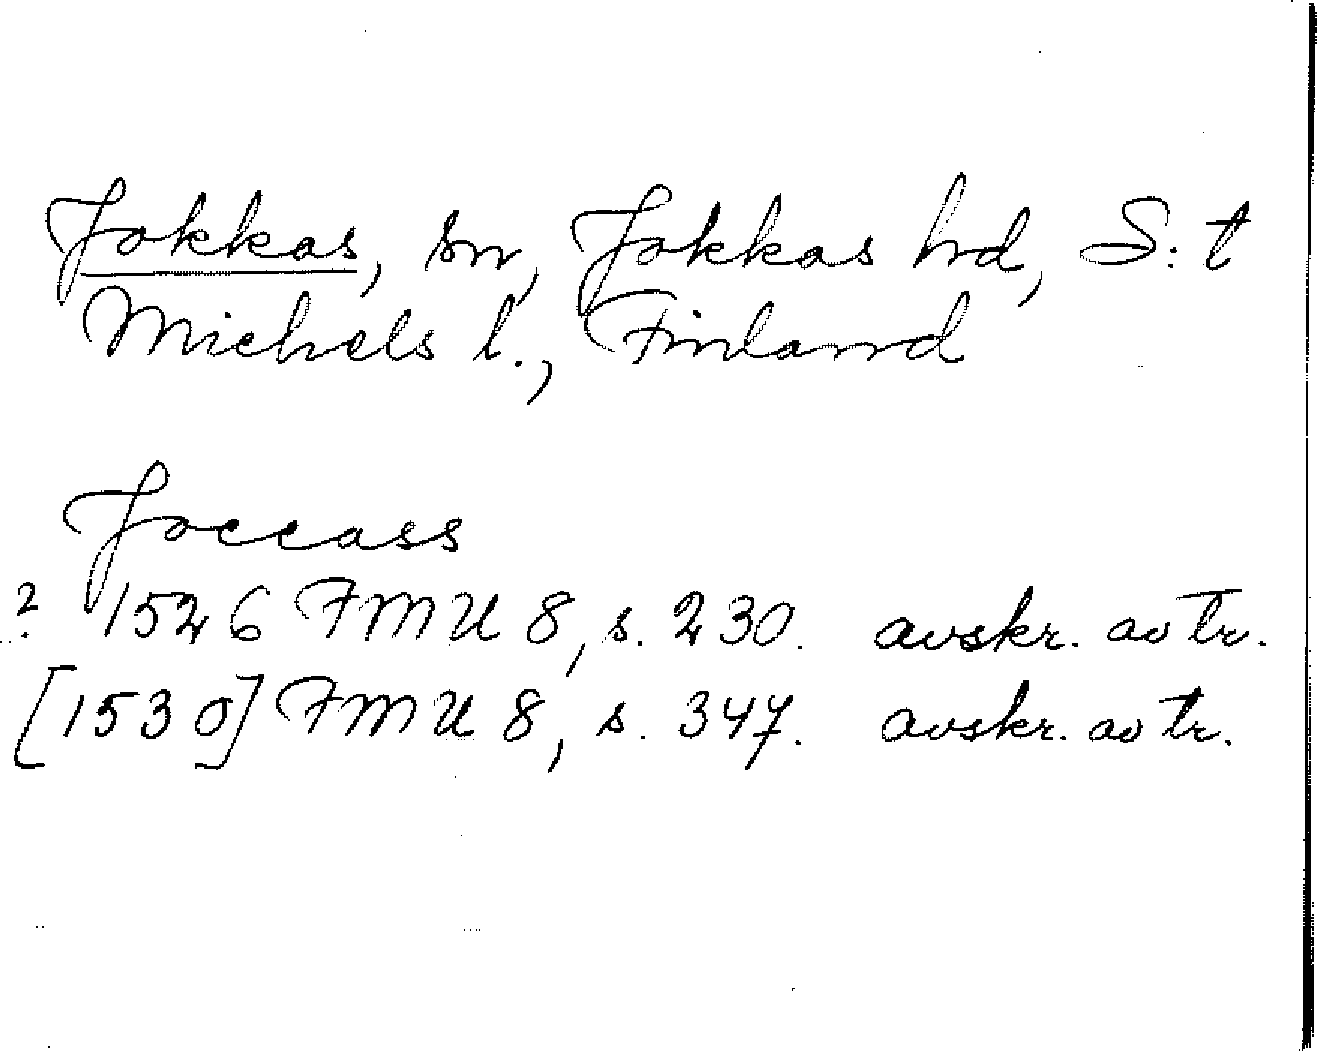 Jokkas, sn, Jokkas hd, S:t
Michels l., Finland
Joccass
? 1526 FMU 8, s. 230. avskr. av tr.
[1530] FMU 8, s. 347. avskr. av tr.